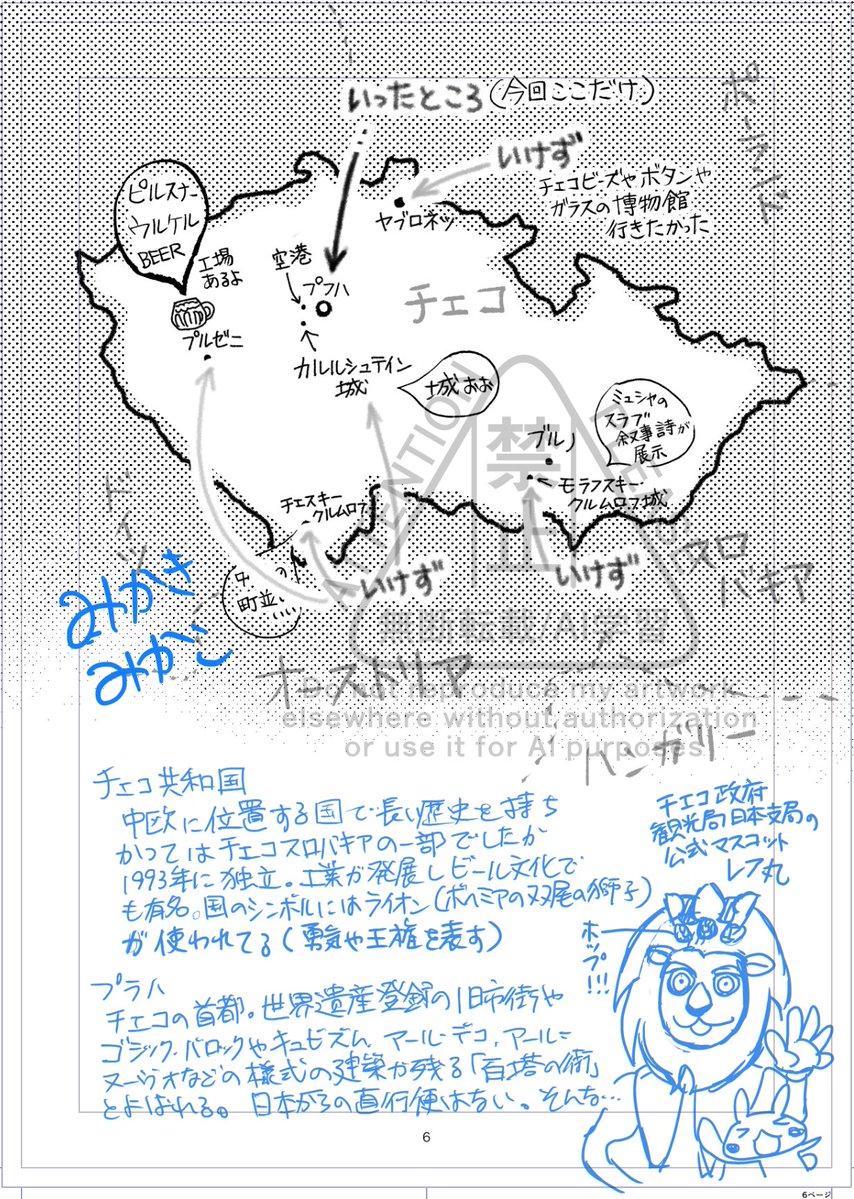 いったところ(今回ここだけ)
ポーランド
いけず
チェコビーズやボタンや
ガラスの博物館
行きたかった
ヤブロネツ
ピルスナー
ウルケル
BEER
工場
あるよ
プルゼニ
空港
プラハ
チェコ
カルルシュテイン
城
城おお
ミュシャの
スラブ
叙事詩が
展示
ブルノ
モラフスキー・
クルムロフ城
チェスキー
クルムロフ
町並
いけず
いけず
ドイツ
スロ
バキア
オーストリア
ハンガリー
みかき
みかこ
ATTENTION
禁止
無断転載 AI学習
Do not reproduce my artwork
elsewhere without authorization
or use it for AI purposes
チェコ共和国
中欧に位置する国で長い歴史を持ち
かつてはチェコスロバキアの一部でしたが
1993年に独立。工業が発展しビール文化で
も有名。国のシンボルにはライオン(ボヘミアの双尾の獅子)
が使われてる(勇気や王権を表す)
プラハ
チェコの首都。世界遺産登録の旧市街や
ゴシック、バロックやキュビズム、アール・デコ、アール=
ヌーヴォなどの様式の建築が残る「百塔の街」
とよばれる。日本からの直行便はない。そんな…
チェコ政府
観光局日本支局の
公式マスコット
レフ丸
ホップ!!!
6
6ページ